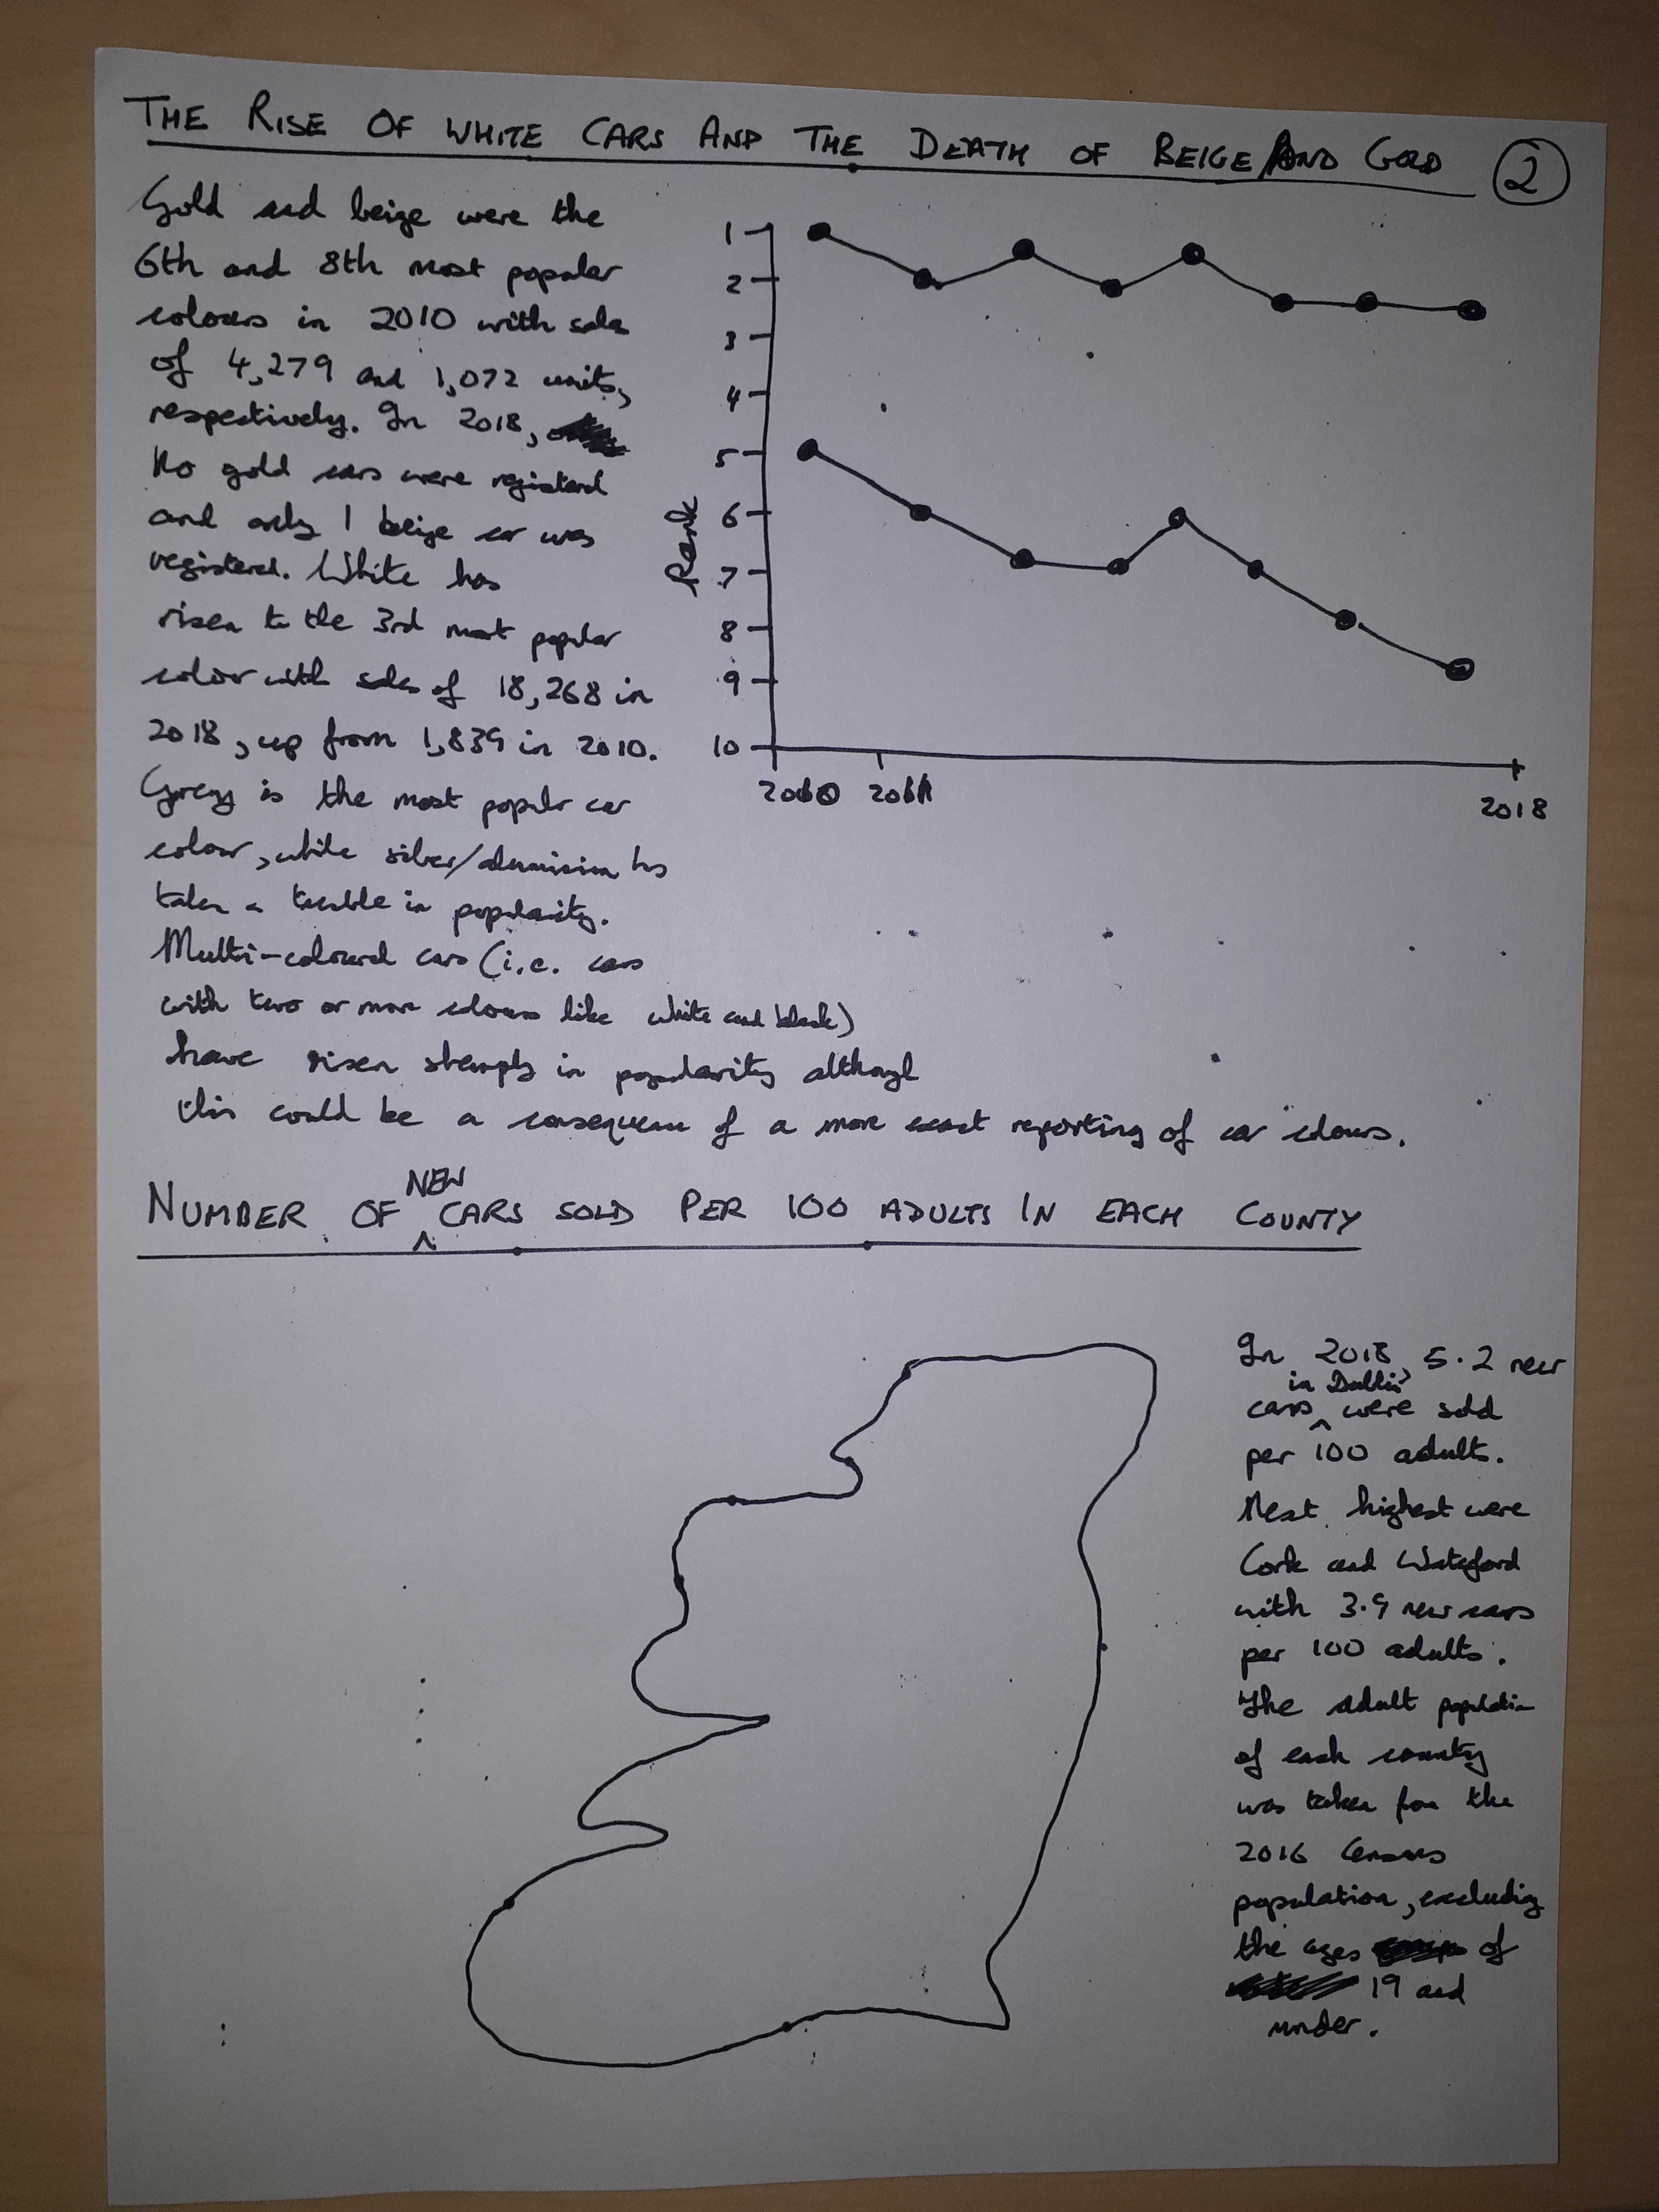 THE RISE OF WHITE CARS AND THE DEATH OF BEIGE AND GOLD
2
Gold and beige were the
6th and 8th most popular
colours in 2010 with sales
of 4,279 and 1,072 units,
respectively. In 2018,
No gold cars were registered
and only 1 beige car was
registered. White has
risen to the 3rd most popular
color with sales of 18,268 in
2018, up from 1,839 in 2010.
Grey is the most popular car
colour, while silver/aluminium has
taken a tumble in popularity.
Multi-coloured cars (i.e. cars
with two or more colours like white and black)
have risen in popularity although
this could be a consequence of a more exact reporting of car colours.
Rank
1
2
3
4
5
6
7
8
9
10
2018
NUMBER OF NEW CARS SOLD PER 100 ADULTS IN EACH COUNTY
In 2018, 5.2 new
cars in Dublin were sold
per 100 adults.
Next highest were
Cork and Waterford
with 3.9 new cars
per 100 adults.
The adult population
of each county
was taken from the
2016 Census
population, excluding
the ages of
19 and
under.